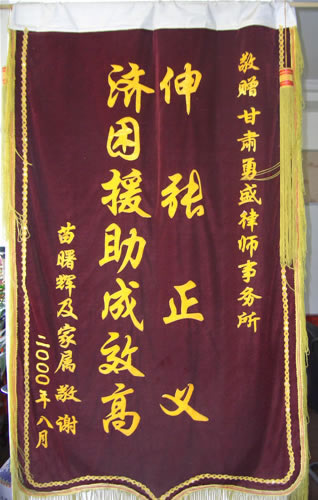 敬赠甘肃勇盛律师事务所
伸张正义
济困援助成效高
苗曙辉及家属敬谢
二000年八月